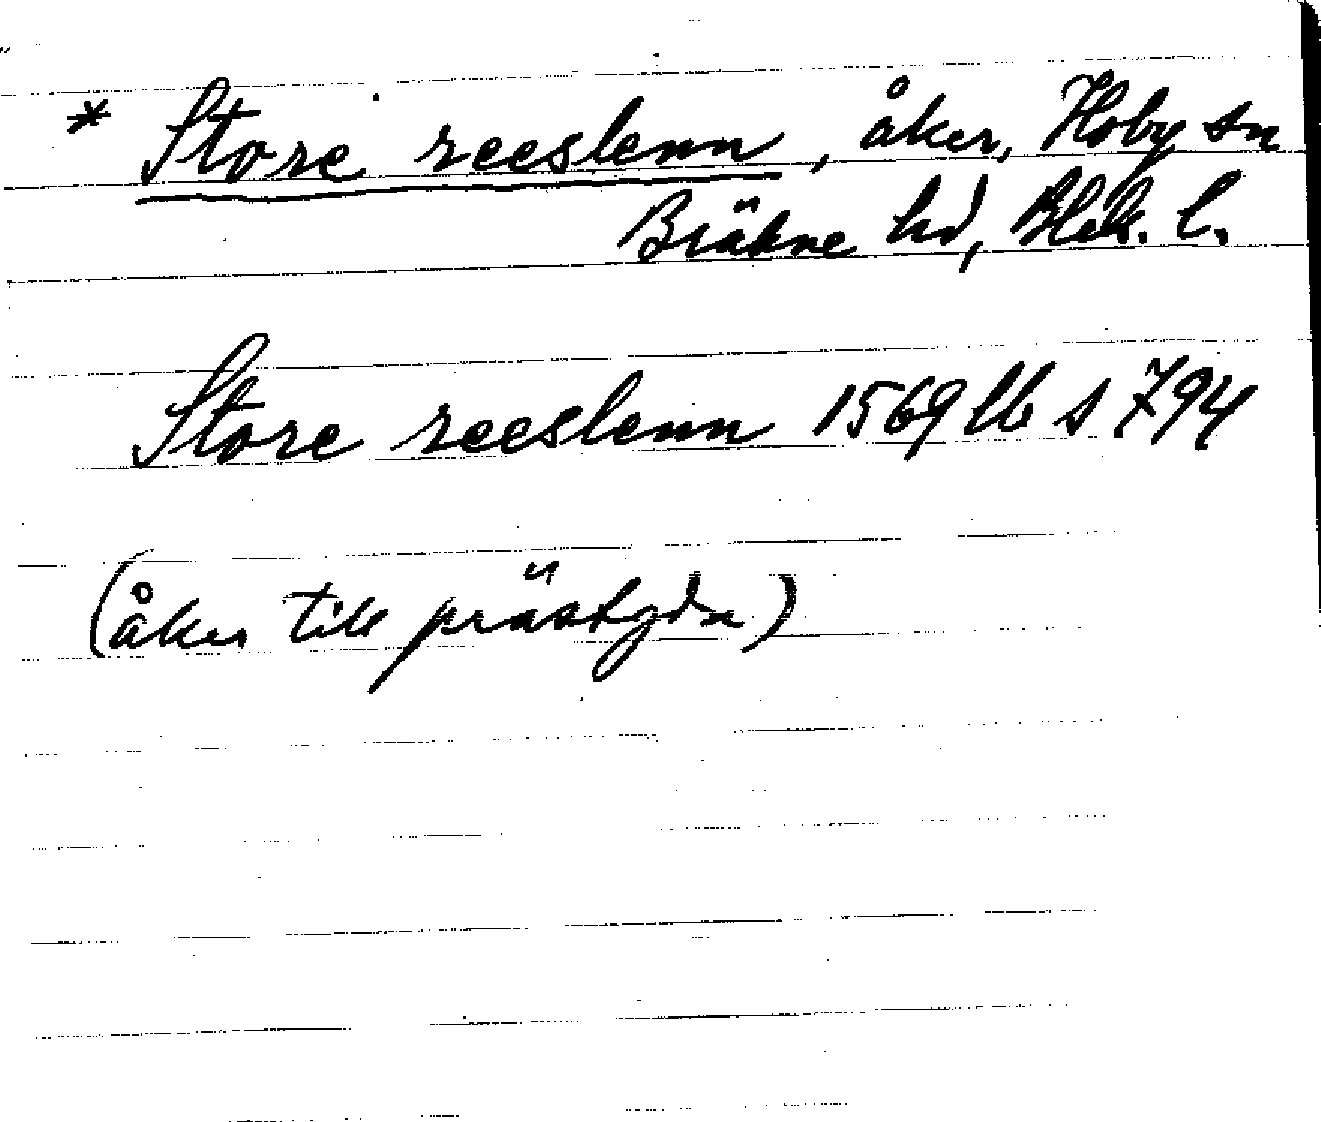 * Store reeslenn, åker, Hoby sn
Bräkne hd, Blek. l.
Store reeslenn 1569 lb s 794
(åker till prästgdn)